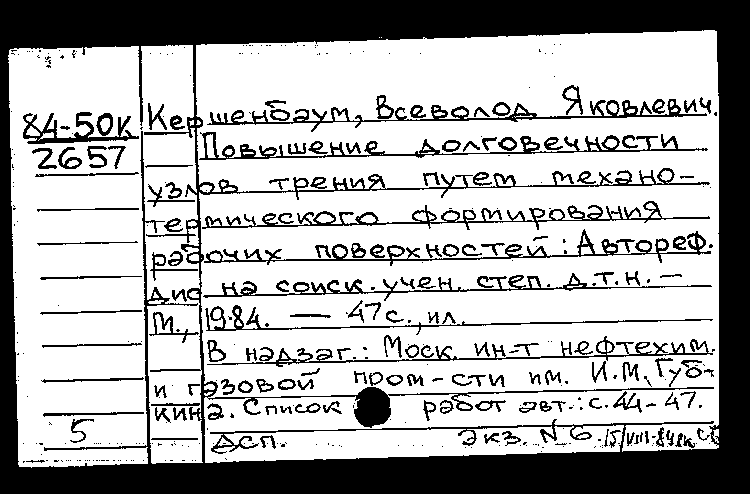 84-50к
2657
Кершенбаум, Всеволод Яковлевич.
Повышение долговечности
узлов трения путем механо-
термического формирования
рабочих поверхностей: Автореф.
дис на соиск. учен. степ. д.т.н. —
М., 1984. — 47с., ил.
В надзаг.: Моск. ин-т нефтехим.
и газовой пром-сти им. И.М. Губ-
кина. Список работ авт.: с. 44-47.
5
ДСП. Экз. N 6. 15/VIII-84